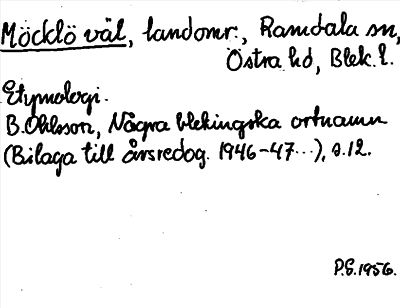 Möcklö väl, landomr., Ramdala sn,
Östra hd, Blek. l.
Etymologi.
B. Ohlsson, Några blekingska ortnamn
(Bilaga till årsredog. 1946-47...), s. 12.
P.G. 1956.